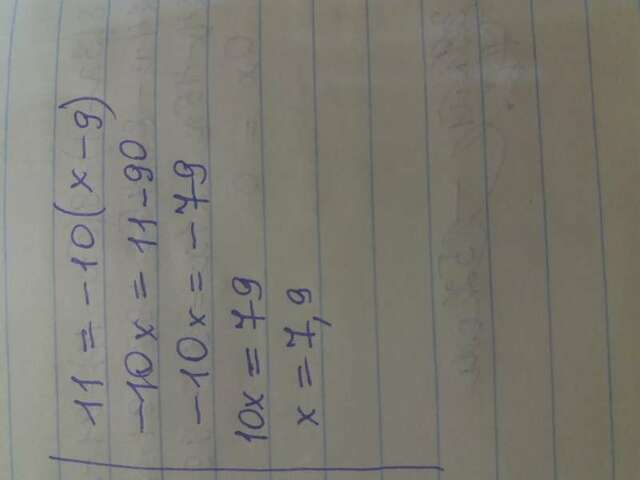 11 = -10(x-9)
-10x = 11-90
-10x = -79
10x = 79
x = 7,9